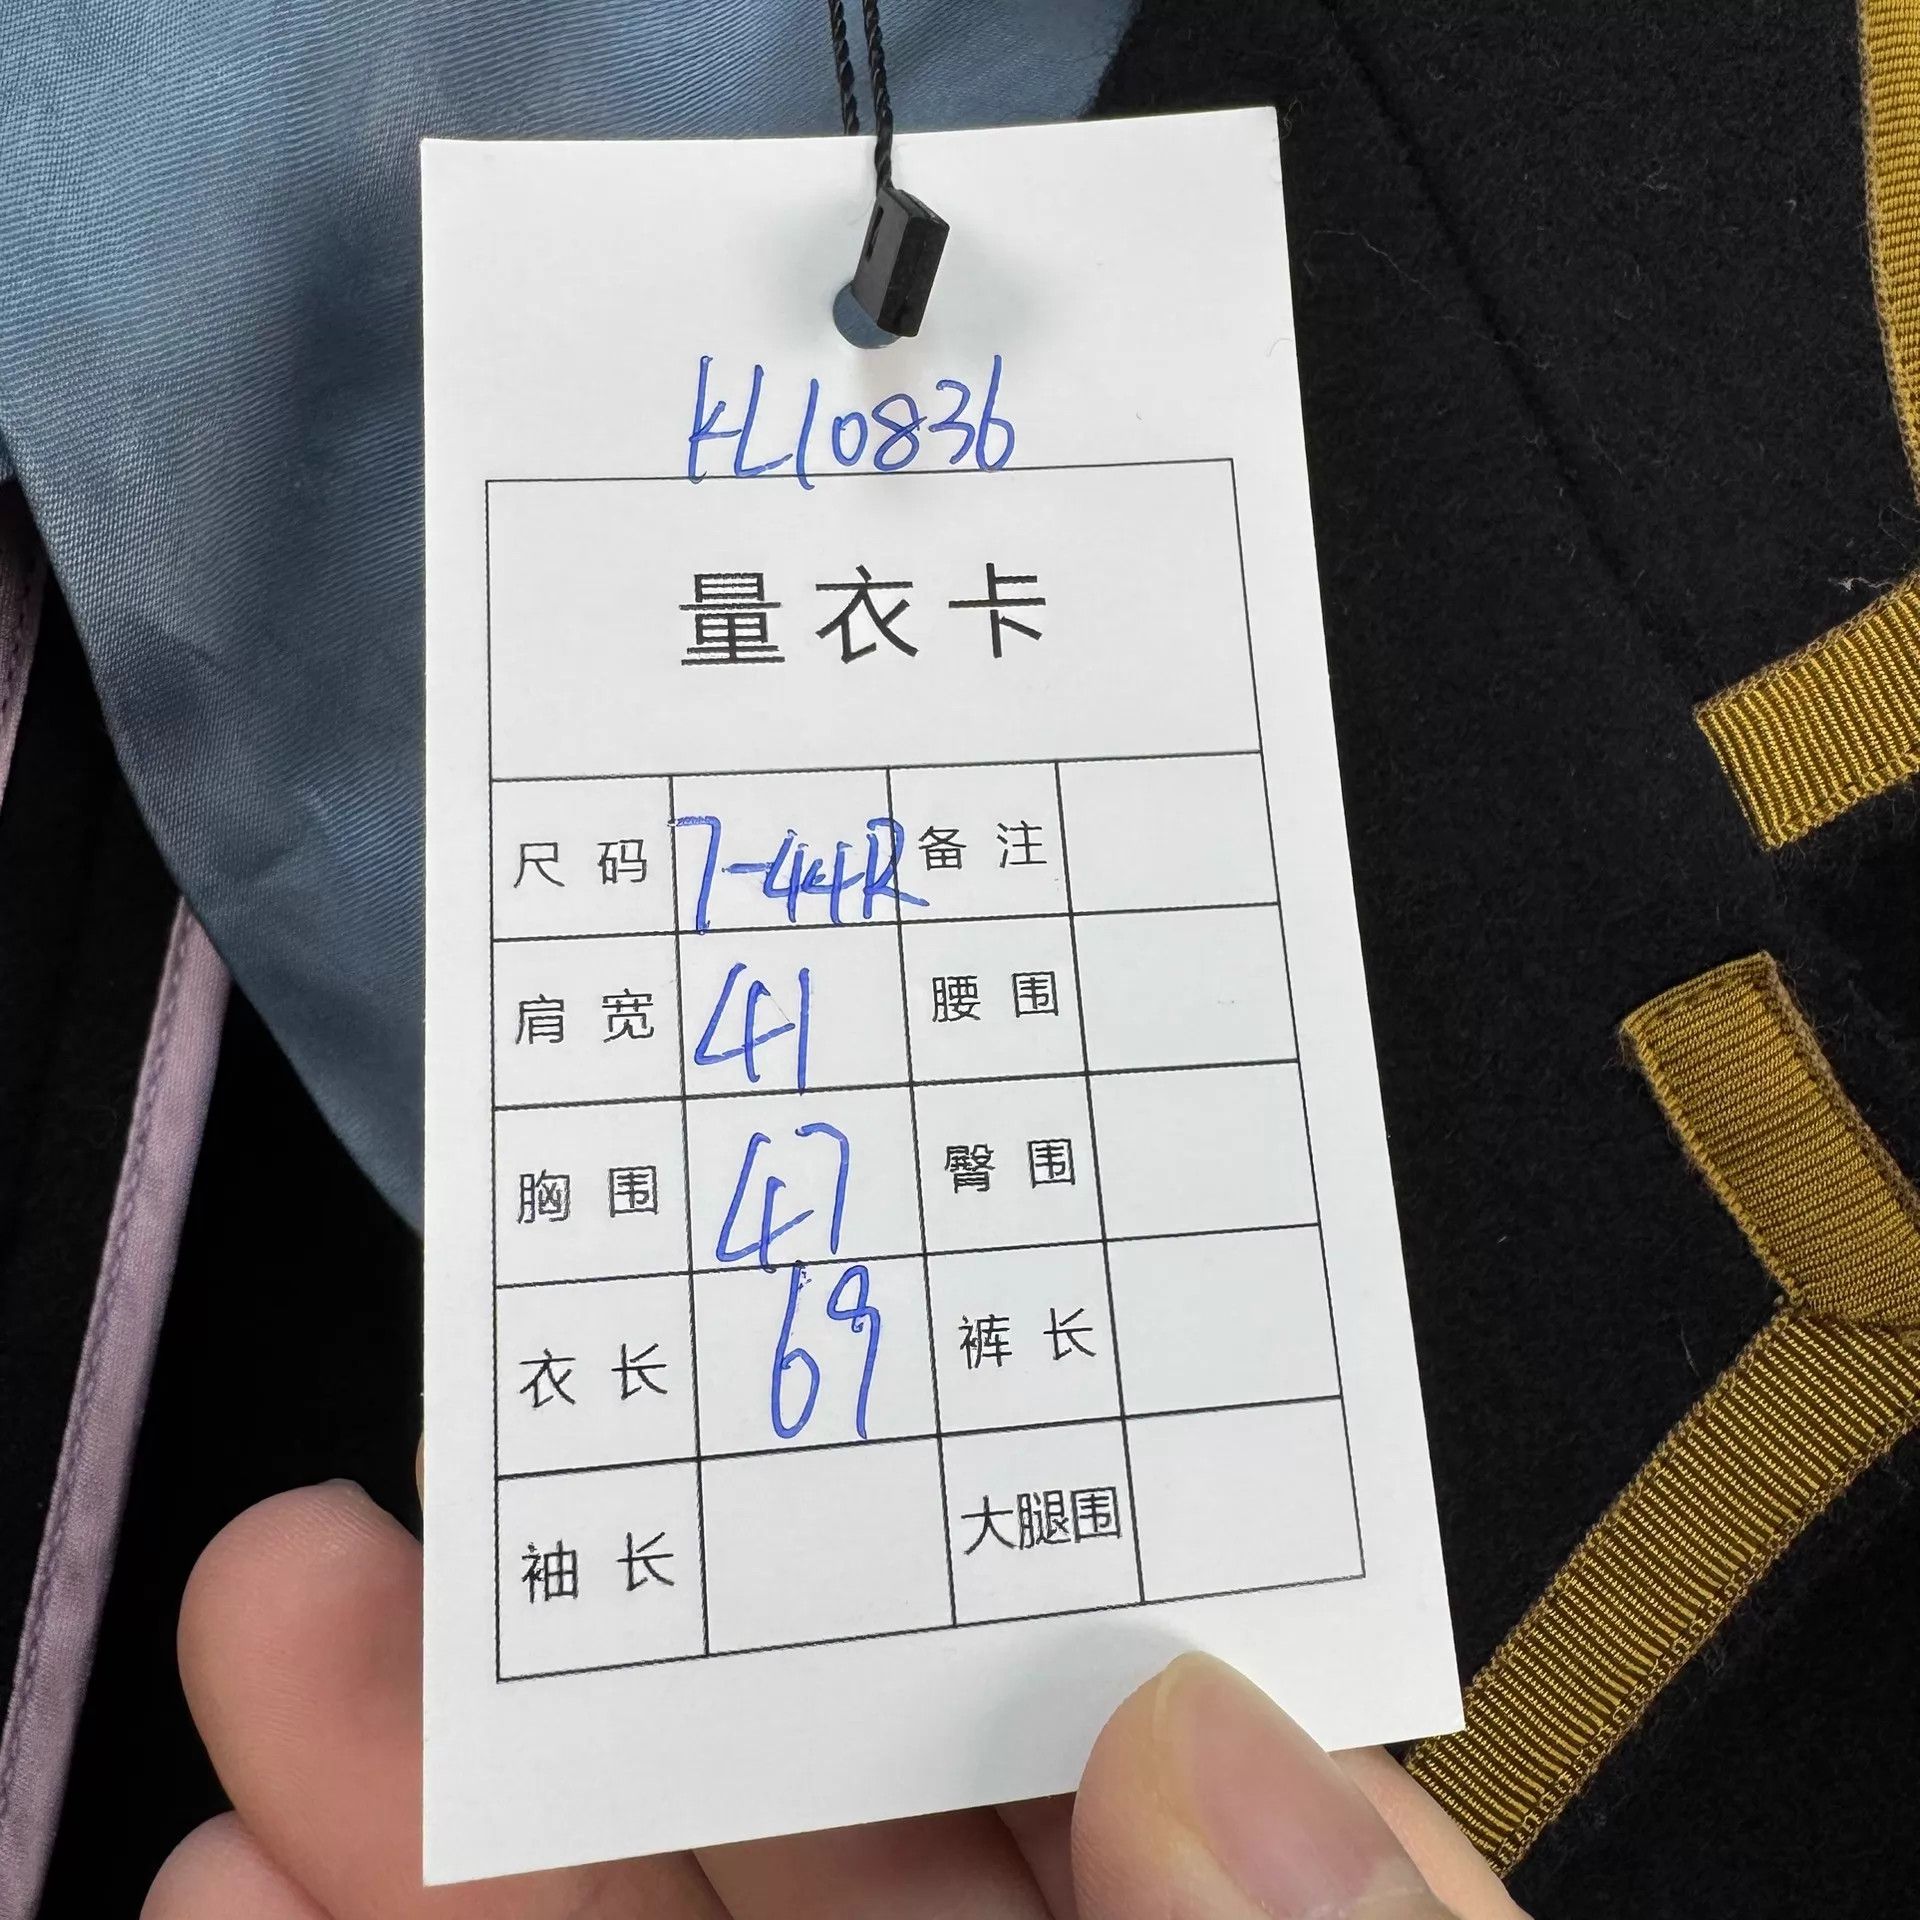 KL10836
量衣卡
尺码 7-44R 备注
肩宽 41 腰围
胸围 47 臀围
衣长 69 裤长
袖长 大腿围